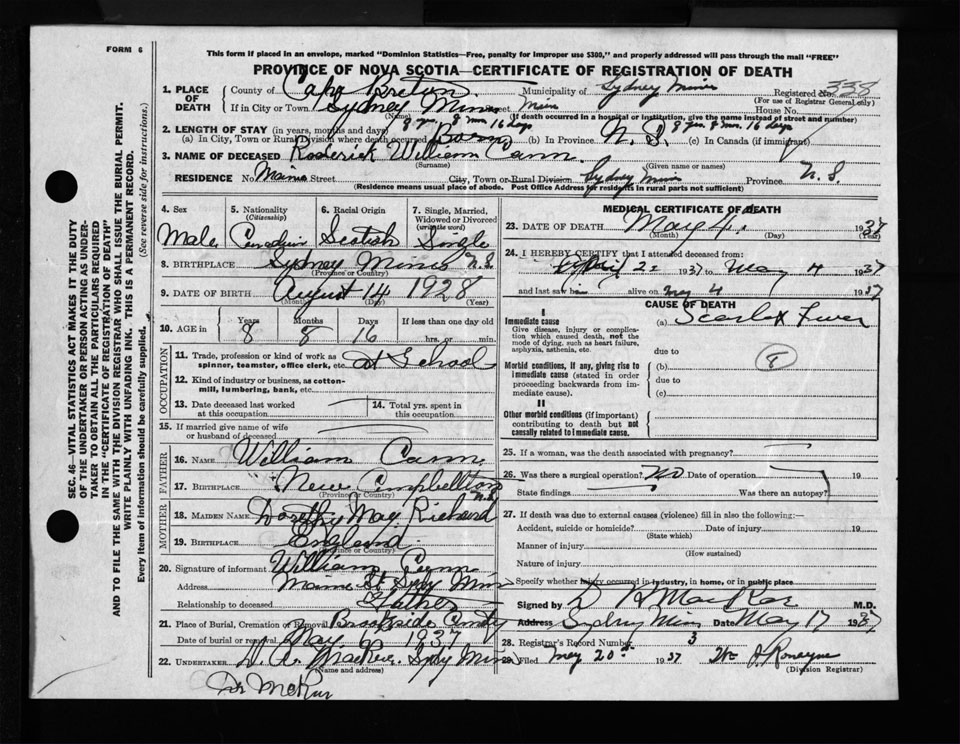 FORM 6
This form if placed in an envelope, marked "Dominion Statistics—Free, penalty for improper use $300," and properly addressed will pass through the mail "FREE"
PROVINCE OF NOVA SCOTIA—CERTIFICATE OF REGISTRATION OF DEATH
1. PLACE OF DEATH
County of Cape Breton Municipality of Sydney Mines Registered No. 338
(For use of Registrar General only)
If in City or Town Sydney Mines Street Main House No.
(Name) (If death occurred in a hospital or institution, give the name instead of street and number)
2. LENGTH OF STAY (in years, months and days) 8 yrs. 8 mos. 16 days 8 yrs. 8 mos. 16 days
(a) In City, Town or Rural Division where death occurred (b) In Province N. S. (c) In Canada (if immigrant)
3. NAME OF DECEASED Roderick William Cann
(Surname) (Given name or names)
RESIDENCE No. Main Street City, Town or Rural Division Sydney Mines Province N. S.
(Residence means usual place of abode. Post Office Address for residents in rural parts not sufficient)
4. Sex Male
5. Nationality (Citizenship) Canadian
6. Racial Origin Scotish
7. Single, Married, Widowed or Divorced (write the word) Single
8. BIRTHPLACE Sydney Mines N.S.
(Province or Country)
9. DATE OF BIRTH August 14 1928
(Month) (Day) (Year)
10. AGE in Years Months Days If less than one day old
8 8 16 hrs. or min.
OCCUPATION
11. Trade, profession or kind of work as spinner, teamster, office clerk, etc. at School
12. Kind of industry or business, as cotton-mill, lumbering, bank, etc.
13. Date deceased last worked at this occupation
14. Total yrs. spent in this occupation
15. If married give name of wife or husband of deceased
FATHER
16. NAME William Cann
17. BIRTHPLACE New Campbellton N.S.
(Province or Country)
MOTHER
18. MAIDEN NAME Dorothy May Richard
19. BIRTHPLACE England
(Province or Country)
20. Signature of informant William Cann
Address Main St Syd Mines
Relationship to deceased Father
21. Place of Burial, Cremation or Removal Brookside
Date of burial or removal May 6 1937
22. UNDERTAKER Syd Mines
(Name and address)
MEDICAL CERTIFICATE OF DEATH
23. DATE OF DEATH May 4 1937
(Month) (Day) (Year)
24. I HEREBY CERTIFY that I attended deceased from:
1937 to May 4 1937
and last saw him alive on May 4 1937
CAUSE OF DEATH
I
Immediate cause
Give disease, injury or complication which caused death, not the mode of dying, such as heart failure, asphyxia, asthenia, etc.
(a) Scarlet Fever
due to
8
Morbid conditions, if any, giving rise to immediate cause (stated in order proceeding backwards from immediate cause).
(b)
due to
(c)
II
Other morbid conditions (if important) contributing to death but not causally related to immediate cause.
25. If a woman, was the death associated with pregnancy?
26. Was there a surgical operation? No Date of operation 19
State findings Was there an autopsy?
27. If death was due to external causes (violence) fill in also the following:—
Accident, suicide or homicide? Date of injury 19
(State which)
Manner of injury
(How sustained)
Nature of injury
Specify whether injury occurred in industry, in home, or in public place
Signed by M.D.
Address Sydney Mines Date May 17 1937
28. Registrar's Record Number 3
29. Filed May 20 1937
(Division Registrar)
SEC. 46—VITAL STATISTICS ACT MAKES IT THE DUTY
OF THE UNDERTAKER OR PERSON ACTING AS UNDER-
TAKER TO OBTAIN ALL THE PARTICULARS REQUIRED
IN THE "CERTIFICATE OF REGISTRATION OF DEATH"
AND TO FILE THE SAME WITH THE DIVISION REGISTRAR WHO SHALL ISSUE THE BURIAL PERMIT.
WRITE PLAINLY WITH UNFADING INK. THIS IS A PERMANENT RECORD.
Every item of information should be carefully supplied. (See reverse side for instructions.)